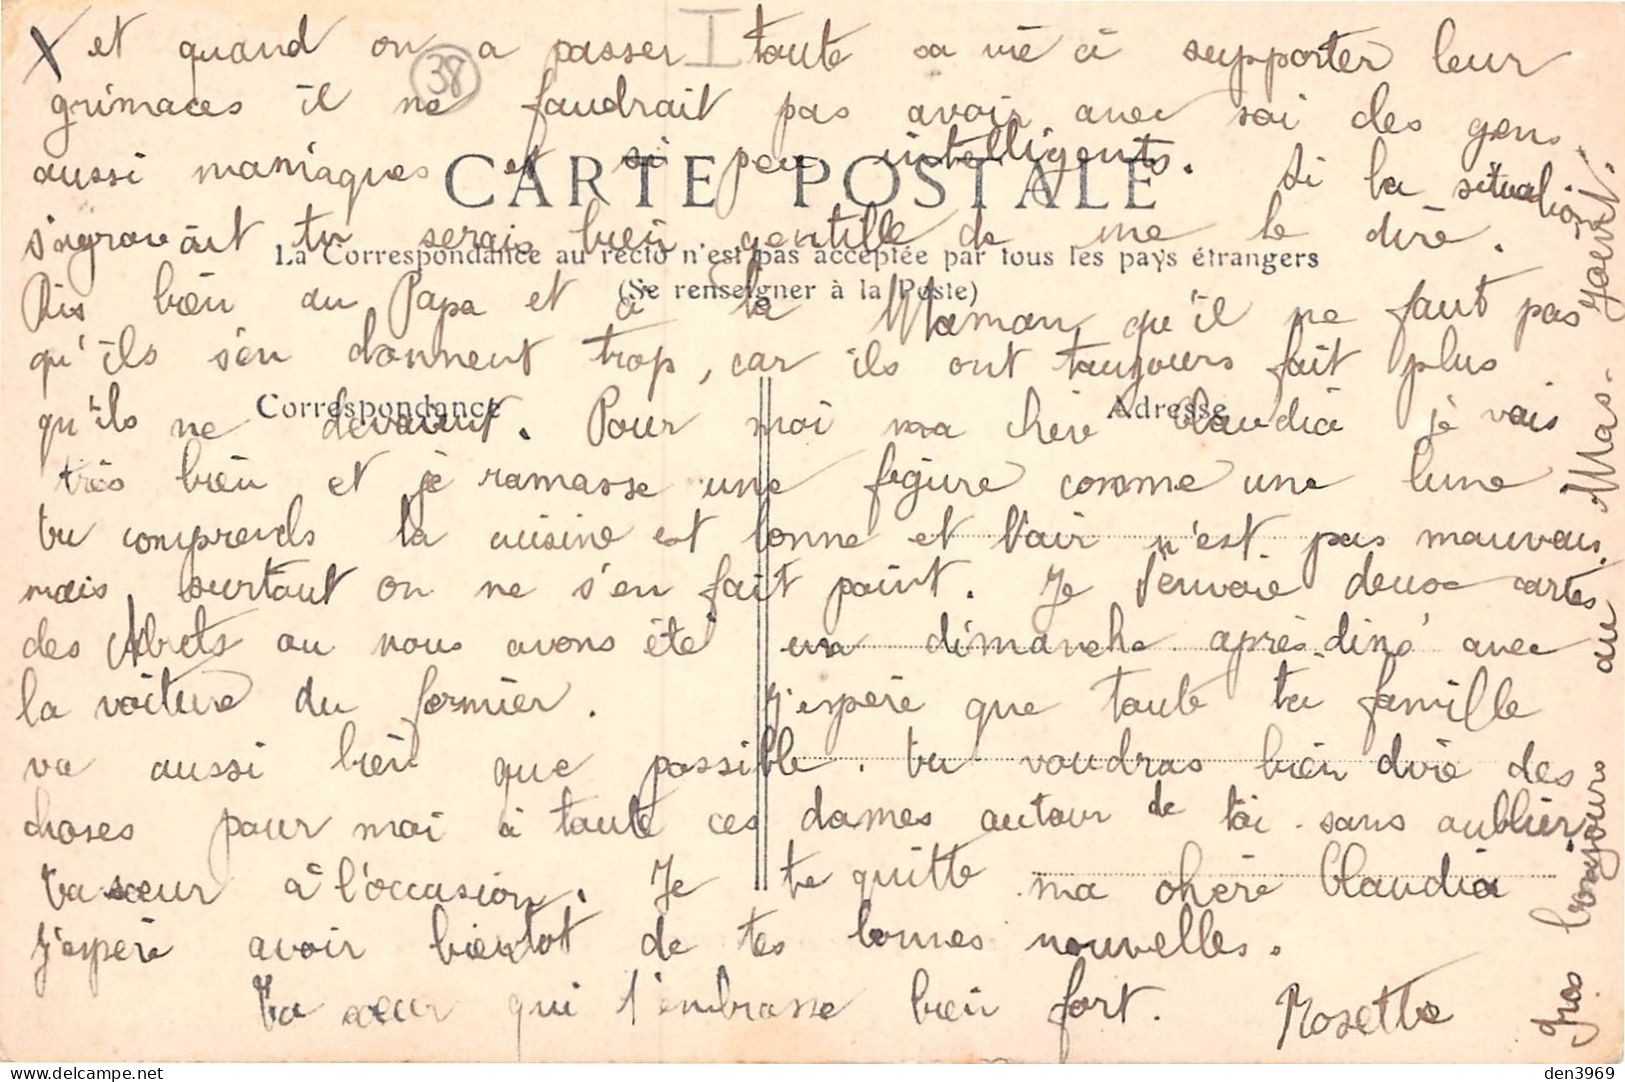 X et quand on a passer toute sa vie à supporter leur
38
grimaces il ne faudrait pas avoir avec soi des gens
aussi maniaques et si peu intelligents. Si la situation
CARTE POSTALE
s'agravait tu serais bien gentille de me le dire.
La Correspondance au recto n'est pas acceptée par tous les pays étrangers
(Se renseigner à la Poste)
Dis bien au Papa et à la Maman qu'il ne faut pas
qu'ils s'en donnent trop, car ils ont toujours fait plus
Correspondance
Adresse
qu'ils ne devaient. Pour moi ma chère Claudia je vais
très bien et je ramasse une figure comme une lune
tu comprends la cuisine est bonne et l'air n'est pas mauvais.
mais surtout on ne s'en fait point. Je t'envoie deux cartes
des Abrets ou nous avons été un dimanche après diné avec
la voiture du fermier. J'espère que toute ta famille
va aussi bien que possible. tu voudras bien dire des
choses pour moi à toute ces dames autour de toi sans oublier
ta sœur à l'occasion. Je te quitte ma chère Claudia
j'espère avoir bientot de tes bonnes nouvelles.
Ta sœur qui t'embrasse bien fort. Rosette
Gros bonjours au Mas-
den3969